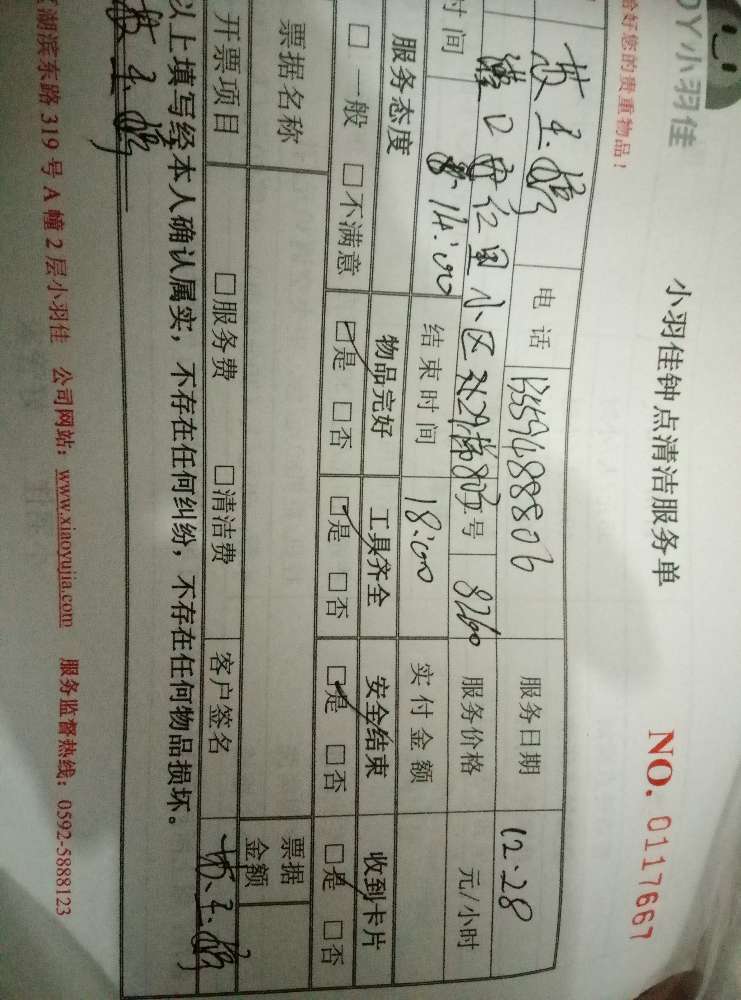 DY小羽佳
小羽佳钟点清洁服务单
NO. 0117667
恰好您的贵重物品！
电话 13559488806 服务日期 12.28
号 8260 服务价格 元/小时
时间 14:00 结束时间 18:00 实付金额
服务态度 物品完好 工具齐全 安全结束 收到卡片
□一般 □不满意 □是 □否 □是 □否 □是 □否 □是 □否
票据名称 票据金额
开票项目 □服务费 □清洁费 客户签名
以上填写经本人确认属实，不存在任何纠纷，不存在任何物品损坏。
湖滨东路 319 号 A 幢 2 层小羽佳 公司网站：www.xiaoyujia.com 服务监督热线：0592-5888123